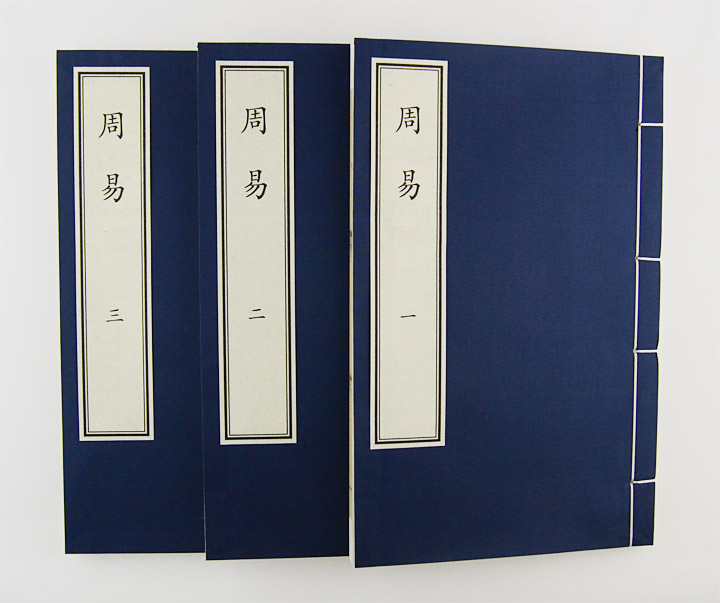 周易 一
周易 二
周易 三